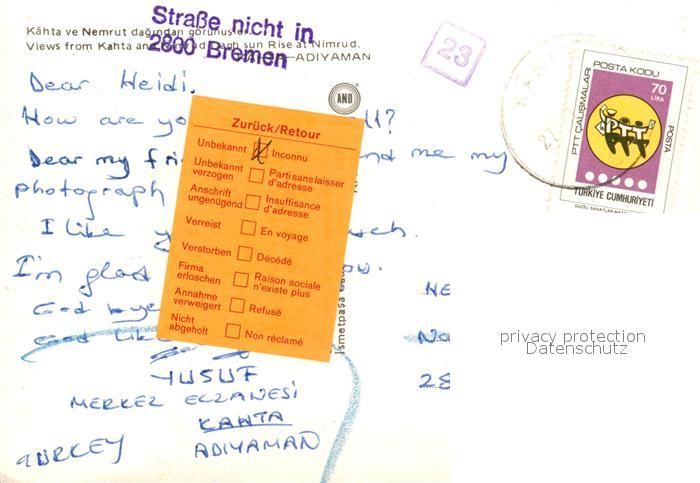 Kâhta ve Nemrut dağından görünüşler.
Views from Kahta and Nimrud Dagh sun Rise at Nimrud.
KAHTA - ADIYAMAN
Straße nicht in
2800 Bremen
23
AND
POSTA KODU
70
LİRA
PTT ÇALIŞMALARI
PTT
POSTA
TÜRKİYE CUMHURİYETİ
Dear Heidi.
How are yo ?
Dear my fri nd me my
photograph
I like y ch.
I'm glad
God bye
God
YUSUF
MERKEZ ECZANESİ
KAHTA
TURKEY ADIYAMAN
Zurück/Retour
Unbekannt Inconnu
Unbekannt verzogen Parti sans laisser d'adresse
Anschrift ungenügend Insuffisance d'adresse
Verreist En voyage
Verstorben Décédé
Firma erloschen Raison sociale n'existe plus
Annahme verweigert Refusé
Nicht abgeholt Non réclamé
İsmetpaşa
HE
Na
28
privacy protection
Datenschutz